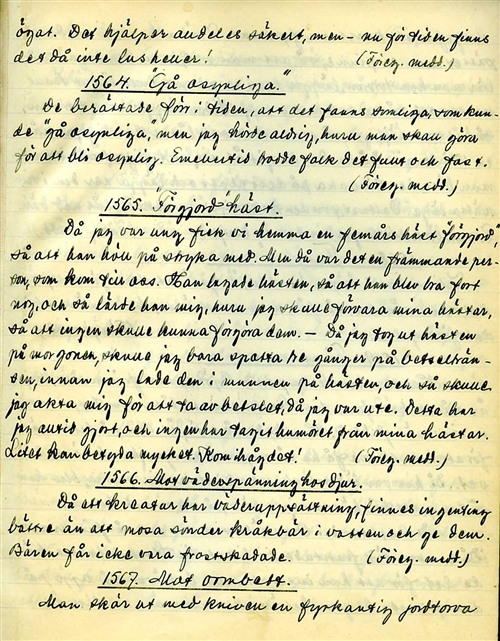 ögat. Det hjälper alldeles säkert, men – nu för tiden finns
det då inte lus heller! (Föreg. medd.)
1564. "Gå osynliga."
De berättade förr i tiden, att det fanns somliga, som kun-
de "gå osynliga," men jag hörde aldrig, huru man skall göra
för att bli osynlig. Emellertid trodde folk det fullt och fast.
(Föreg. medd.)
1565. "Förgjord" häst.
Då jag var ung fick vi hemma en femårs häst "förgjord"
så att han höll på stryka med. Men då var det en främmande per-
son, som kom till oss. Han lagade hästen, så att han blev bra fort
nog, och så lärde han mig, huru jag skulle förvara mina hästar,
så att ingen skulle kunna förgöra dem. – Då jag tog ut hästen
på morgonen, skulle jag bara spotta tre gånger på betselträn-
sen, innan jag lade den i munnen på hästen, och så skulle
jag akta mig för att ta av betslet, då jag var ute. Detta har
jag alltid gjort, och ingen har tagit humöret från mina hästar.
Litet kan betyda mycket. Kom ihåg det! (Föreg. medd.)
1566. Mot väderspänning hos djur.
Då ett kreatur har väderuppsättning, finnes ingenting
bättre än att mosa sönder kråkbär i vatten och ge dem.
Bären får icke vara frostskadade. (Föreg. medd.)
1567. Mot ormbett.
Man skär ut med kniven en fyrkantig jordtorva